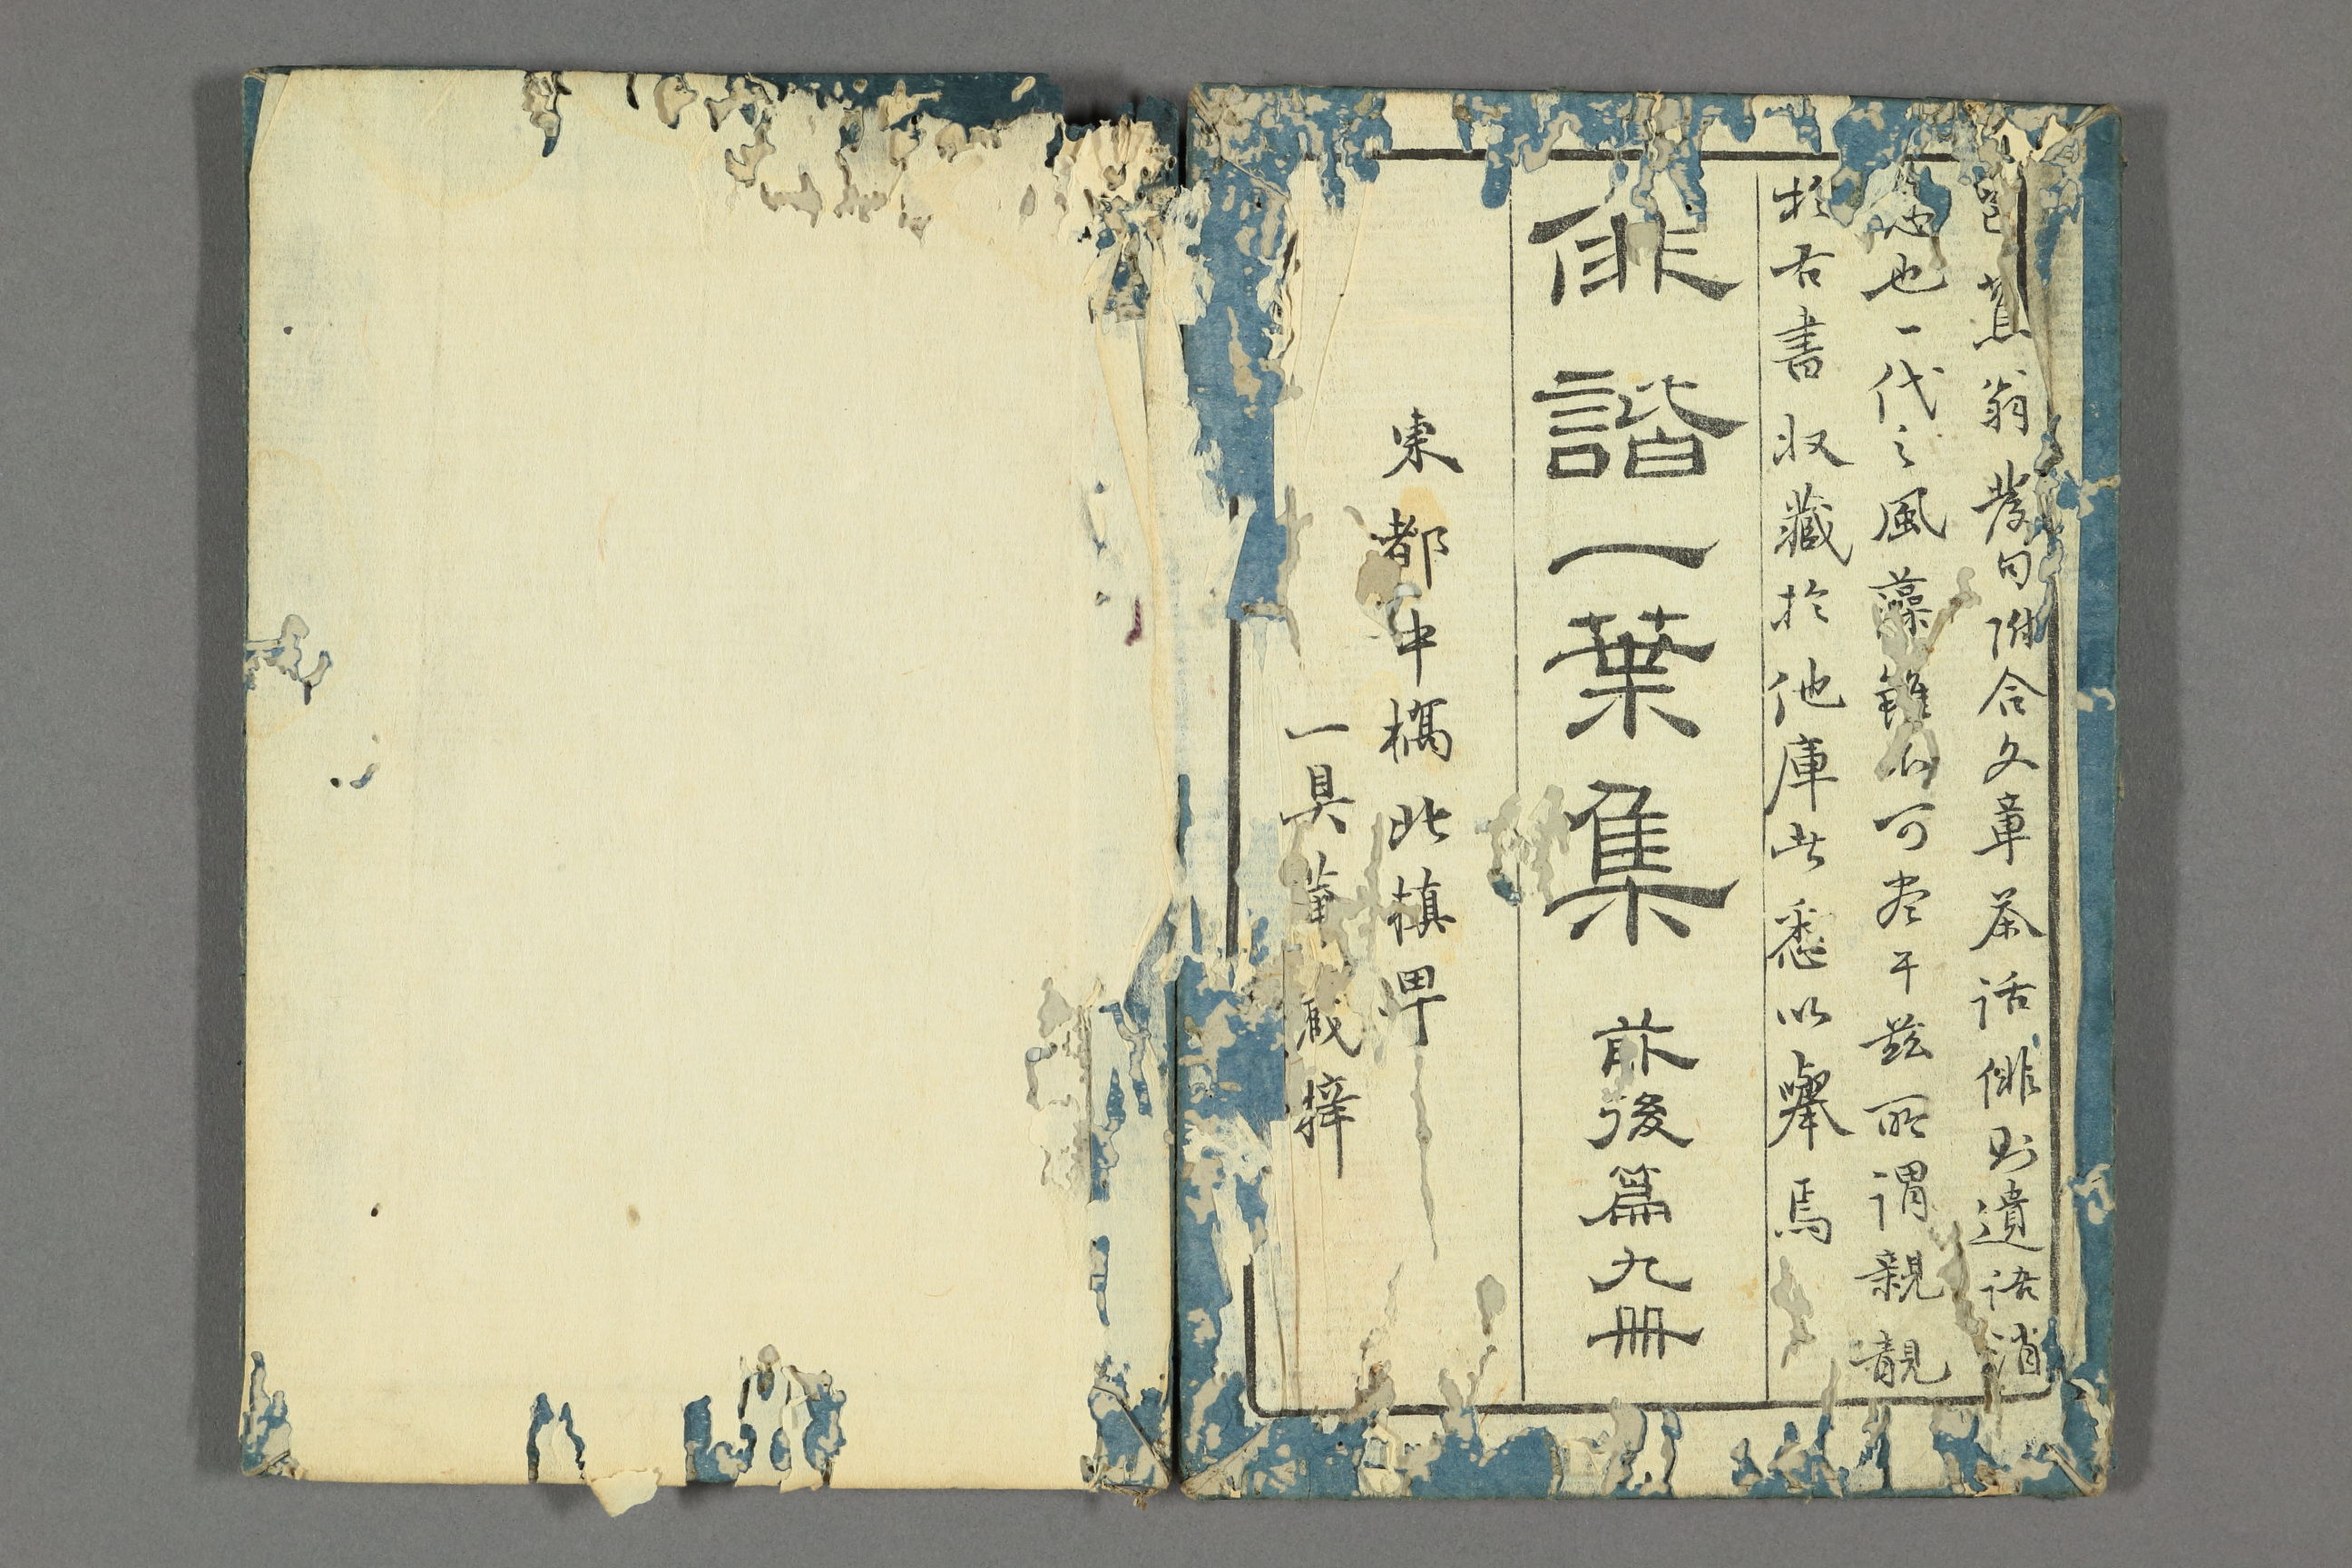 芭蕉翁發句附合文章茶話俳則遺語消
息也一代之風藻雖不可尽于茲所謂親覩
於古書収藏於他庫者悉以擧焉
俳諧一葉集 前後篇九冊
東都中橋北槙甼
一具菴蔵梓